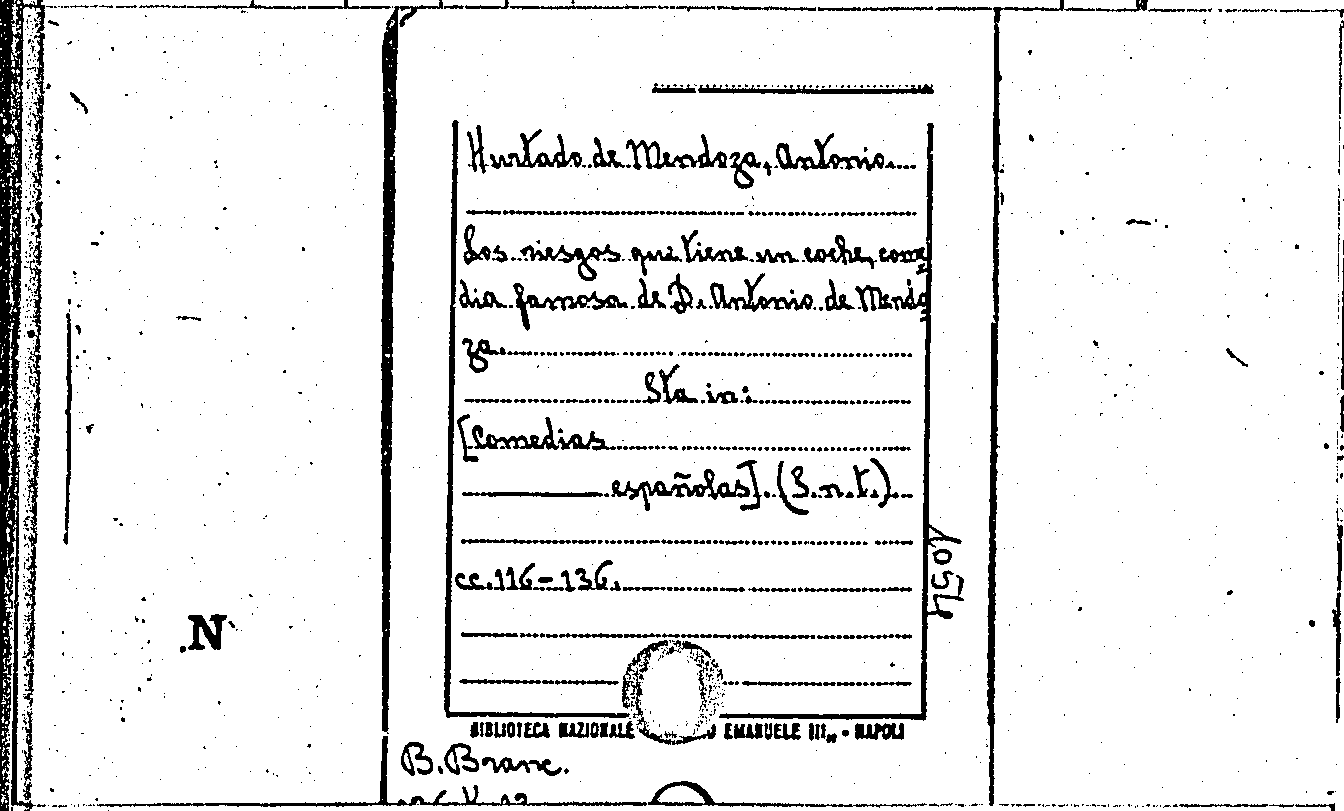 Hurtado de Mendoza, Antonio.
Los riesgos que tiene un coche, come=
dia famosa de D. Antonio de Mendo=
za.
Sta in:
[Comedias
españolas]. (S.n.t.).
cc. 116-136.
1054
.N
BIBLIOTECA NAZIONALE EMANUELE III,, - NAPOLI
B. Branc.